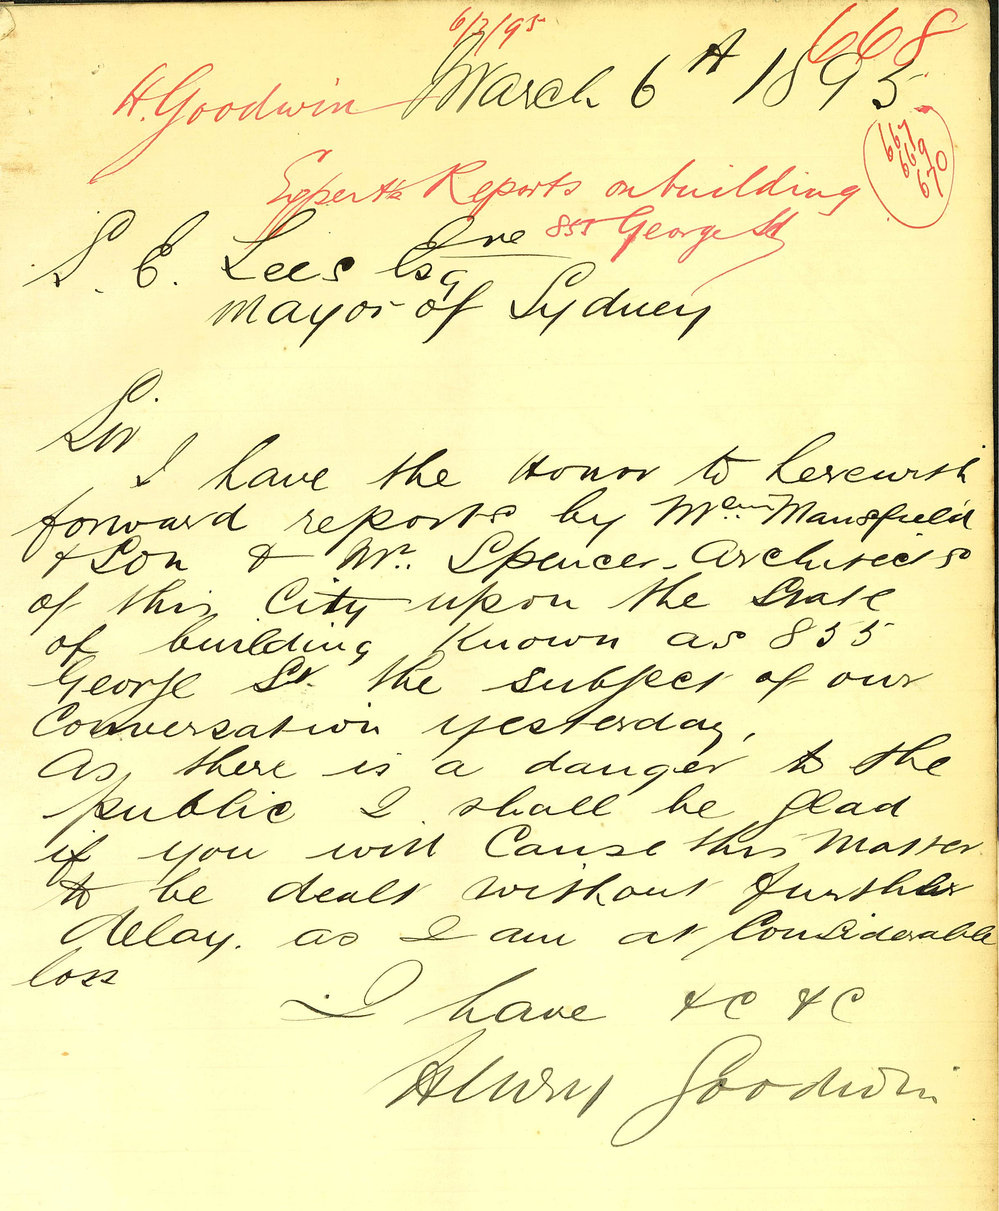 6/3/95
668
March 6th 1895
H. Goodwin
667
669
670
Experts Reports on building
855 George St
S. E. Lees Esqre
Mayor of Sydney
Sir
I have the Honor to herewith
forward reports by Messrs Mansfield
& Son & Mr. Spencer Architects
of this City upon the State
of building Known as 855
George St. the subject of our
Conversation yesterday,
As there is a danger to the
public I shall be glad
if you will Cause this Matter
to be dealt without further
delay. as I am at Considerable
loss
I have &c &c
Henry Goodwin